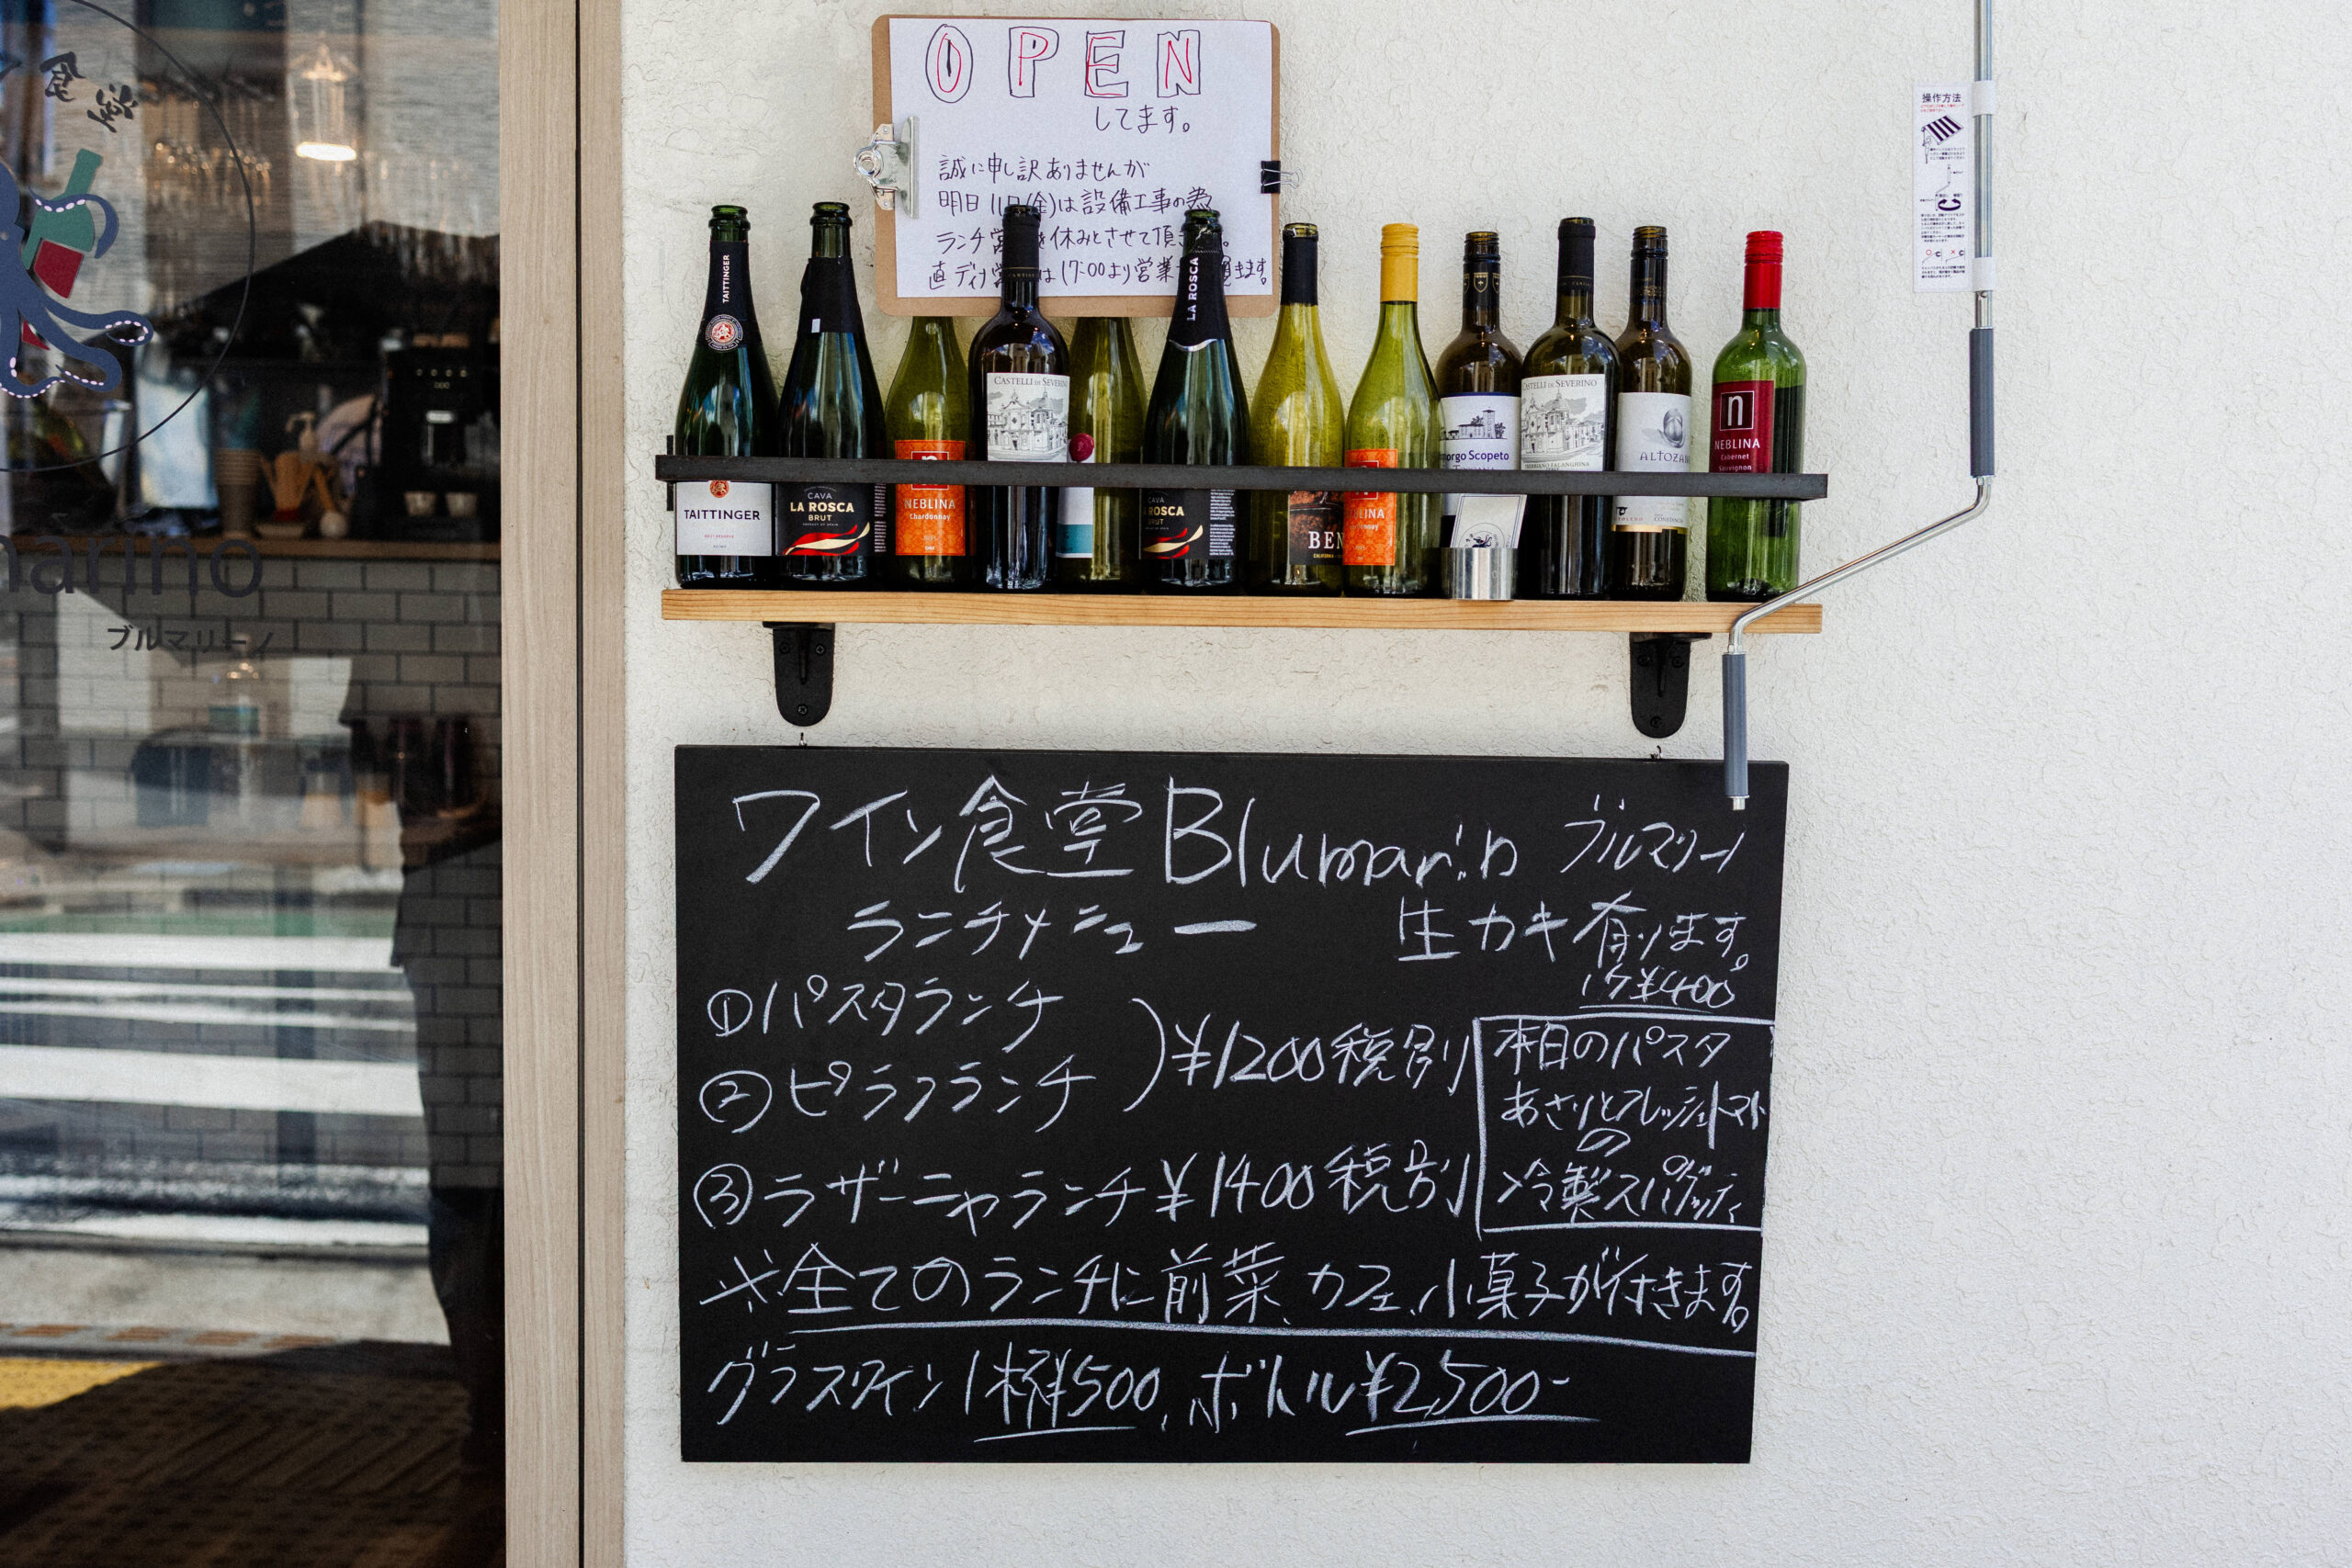 OPEN
してます。
誠に申し訳ありませんが
明日11日(金)は設備工事の為
ランチ営 を休みとさせて頂き 。
直 ディナ営 は17:00より営業 頂きます。
操作方法
食堂
TAITTINGER
LA ROSCA
CASTELLI DI SEVERINO
CASTELLI DI SEVERINO
orgo Scopeto
ALTOZA
n
NEBLINA
Cabernet
Sauvignon
TAITTINGER
CAVA
LA ROSCA
BRUT
NEBLINA
Chardonnay
CAVA
ROSCA
BRUT
BEN
LINA
arino
ブルマリーノ
ワイン食堂 Blumarin ブルマリーノ
ランチメニュー 生カキ有ります。
1ケ¥400
①パスタランチ
②ピラフランチ
¥1200税別
③ラザーニャランチ ¥1400税別
本日のパスタ
あさりとフレッシュトマト
の
冷製スパゲッティ
※全てのランチに前菜、カフェ、小菓子が付きます。
グラスワイン1杯¥500、ボトル¥2,500-